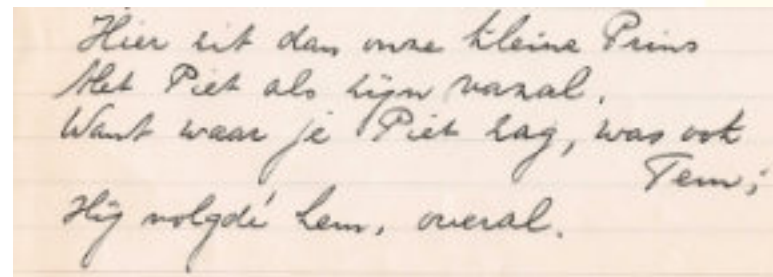 Hier zit dan onze kleine Prins
Met Piet als zijn vazal.
Want waar je Piet zag, was ook
Tem;
Hij volgde hem, overal.